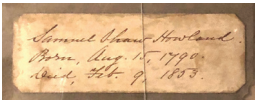 Samuel Shaw Howland.
Born, Aug. 15, 1790.
Died, Feb. 9. 1853.